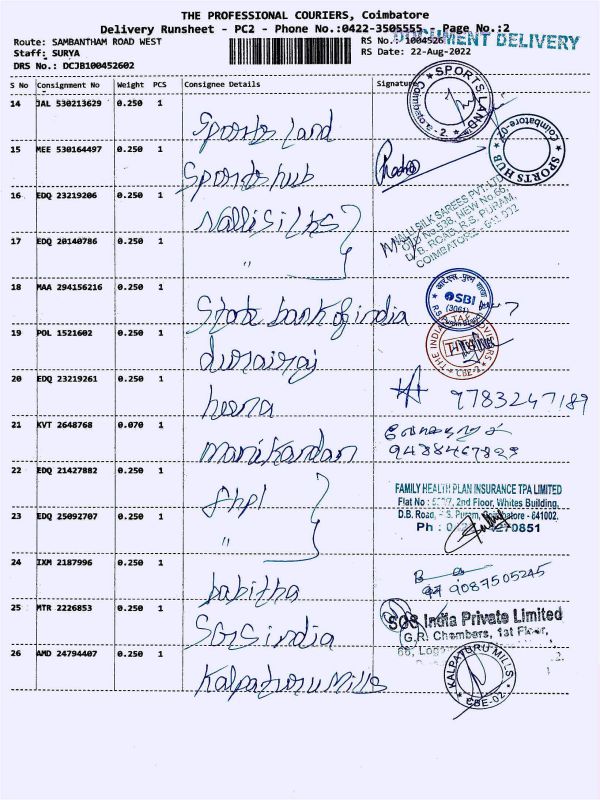 THE PROFESSIONAL COURIERS, Coimbatore
Delivery Runsheet - PC2 - Phone No.:0422-3505555 - Page No.:2
Route: SAMBANTHAM ROAD WEST
RS No.: 1004526
DOCUMENT DELIVERY
Staff: SURYA
RS Date: 22-Aug-2022
DRS No.: DCJB100452602
S No Consignment No Weight PCS Consignee Details Signature
14 JAL 530213629 0.250 1
Sports Land
SPORTS LAND
Coimbatore-2
15 MEE 530164497 0.250 1
Sports hub
SPORTS HUB
Coimbatore-02
16 EDQ 23219206 0.250 1
Nalli Silks
NALLI SILK SAREES PVT. LTD
OLD No.538, NEW No.66,
D.B. ROAD, R.S. PURAM,
COIMBATORE - 641 002
17 EDQ 20140786 0.250 1
"
18 MAA 294156216 0.250 1
State bank of india
SBI
19 POL 1521602 0.250 1
durairaj
THE INDIA
CBE-2
20 EDQ 23219261 0.250 1
heena
9783247189
21 KVT 2648768 0.070 1
manikandan
22 EDQ 21427882 0.250 1
fhpl
FAMILY HEALTH PLAN INSURANCE TPA LIMITED
2nd Floor, Whites Building,
D.B. Road, R.S. Puram, Coimbatore - 641002.
23 EDQ 25092707 0.250 1
"
24 IXM 2187996 0.250 1
babitha
9087505245
25 MTR 2226853 0.250 1
SGS india
SGS India Private Limited
G.R. Chambers, 1st Floor,
26 AMD 24794407 0.250 1
Kalpaturu Mills
KALPATURU MILLS
CBE-02